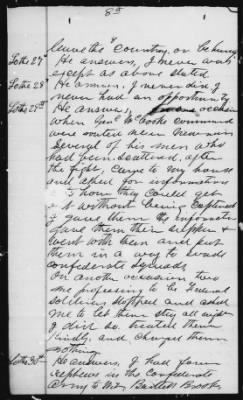 8th
leave the country, or [...]
To the 27th He answers, I never was
except as above stated
To the 28 He answers, I never did, I
never had an opportunity
To the 29th He answers, on one occasion
when Genl McCooks command
were routed near Newnan
Several of his men who
had been scattered, after
the fight, came to my house
and asked for information
how they could get
out without being captured
I gave them the information
gave them their supper &
went with them and put
them in a way to evade
confederate squads
On another occasion two
men professing to be Federal
soldiers stopped and asked
me to let them stay all night
I did so, treated them
kindly, and charged them
nothing
To the 30th He answers, I had four
nephews in the Confederate
Army to wit, Bartlett Brooks